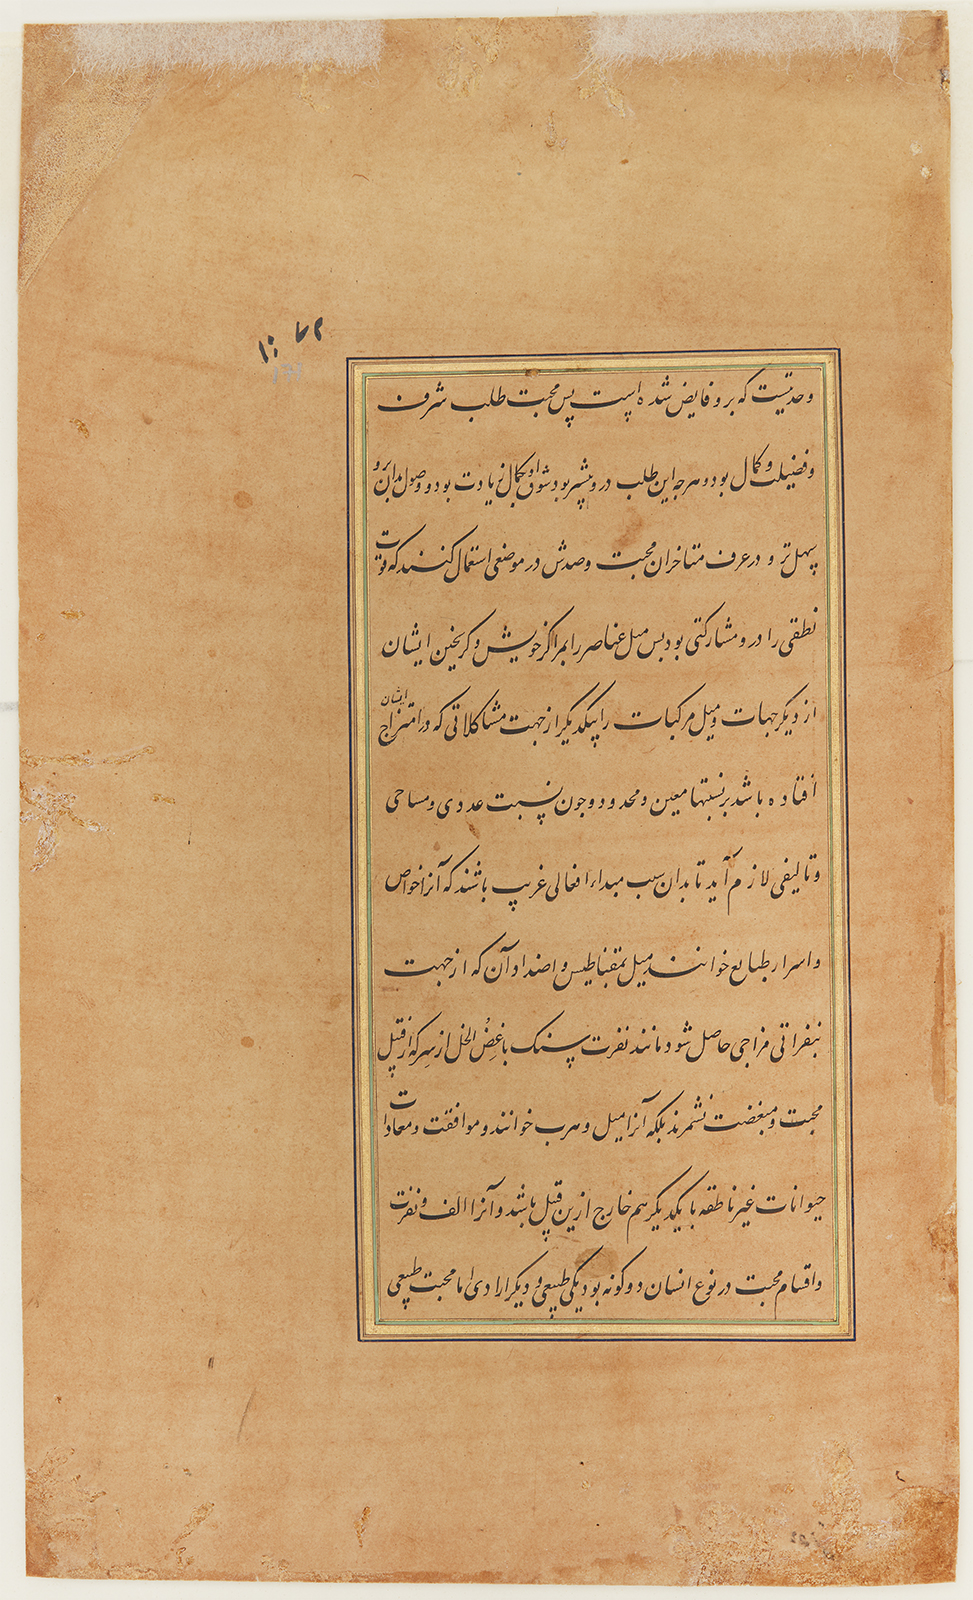 وحدتیست که برو فایض شده است پس محبت طلب شرف
و فضیلت و کمال بود و هرچه این طلب درو بیشتر بود شوق او بکمال زیادت بود و وصول بدان برو
سهل تر و در عرف متاخران محبت وصدش در موضعی استعمال کنند که قوت
نطقی را درو مشارکتی بود پس میل عناصر را بمراکز خویش و کریختن ایشان
از دیکر جهات و میل مرکبات را بیکدیکر از جهت مشاکلاتی که در امتزاج ایشان
افتاده باشد بر نسبتها معین و محدود و چون نسبت عددی و مساحی
و تالیفی لازم آید تا بدان سبب مبداء افعالی غریب باشند که آنرا خواص
و اسرار طبایع خوانند میل بمقناطیس و اضداد آن که از جهت
نفراتی مزاجی حاصل شود مانند نفرت سنک باغض الخل از سرکه از قبیل
محبت و مبغضت نشمرند بلکه آنرا میل و هرب خوانند و موافقت و معادات
حیوانات غیر ناطقه با یکدیکر هم خارج ازین قبیل باشد و آنرا الف و نفرت
و اقسام محبت در نوع انسان دو کونه بود یکی طبیعی و دیکر ارادی اما محبت طبیعی